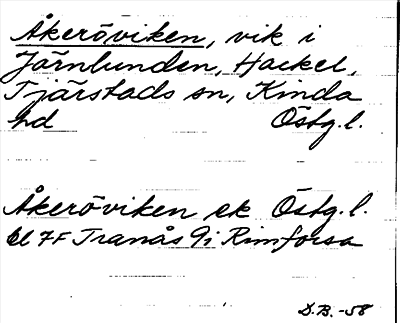 Åkeröviken, vik i
Järnlunden, Hackel,
Tjärstads sn, Kinda
hd Östg.l.
Åkeröviken ek Östg.l.
bl 7F Tranås 9i Rimforsa
D.B.-58